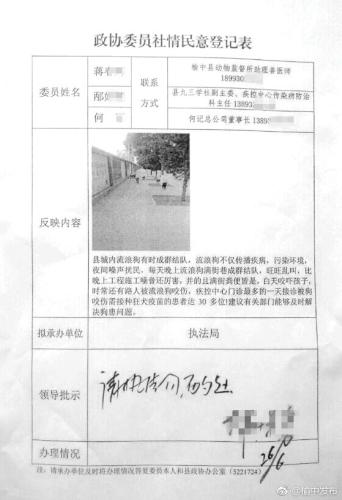 政协委员社情民意登记表
委员姓名
蒋
联系
方式
榆中县动物监督所助理兽医师
18993
邴
县九三学社副主委、疾控中心传染病防治
科主任 13893
何
何记总公司董事长 1389
反映内容
县城内流浪狗有时成群结队，流浪狗不仅传播疾病，污染环境，
夜间噪声扰民，每天晚上流浪狗满街巷成群结队，旺旺乱叫，比
晚上工程施工噪音还厉害，并的且满街粪便皆是，白天咬吓孩子，
时常还有路人被流浪狗咬伤，疾控中心门诊最多的一天接诊被狗
咬伤需接种狂犬疫苗的患者达 30 多位!建议有关部门能够及时解
决狗患问题。
拟承办单位
执法局
领导批示
26/6
办理情况
注：请承办单位及时将办理情况答复委员本人和县政协办公室（5221724）
@榆中发布